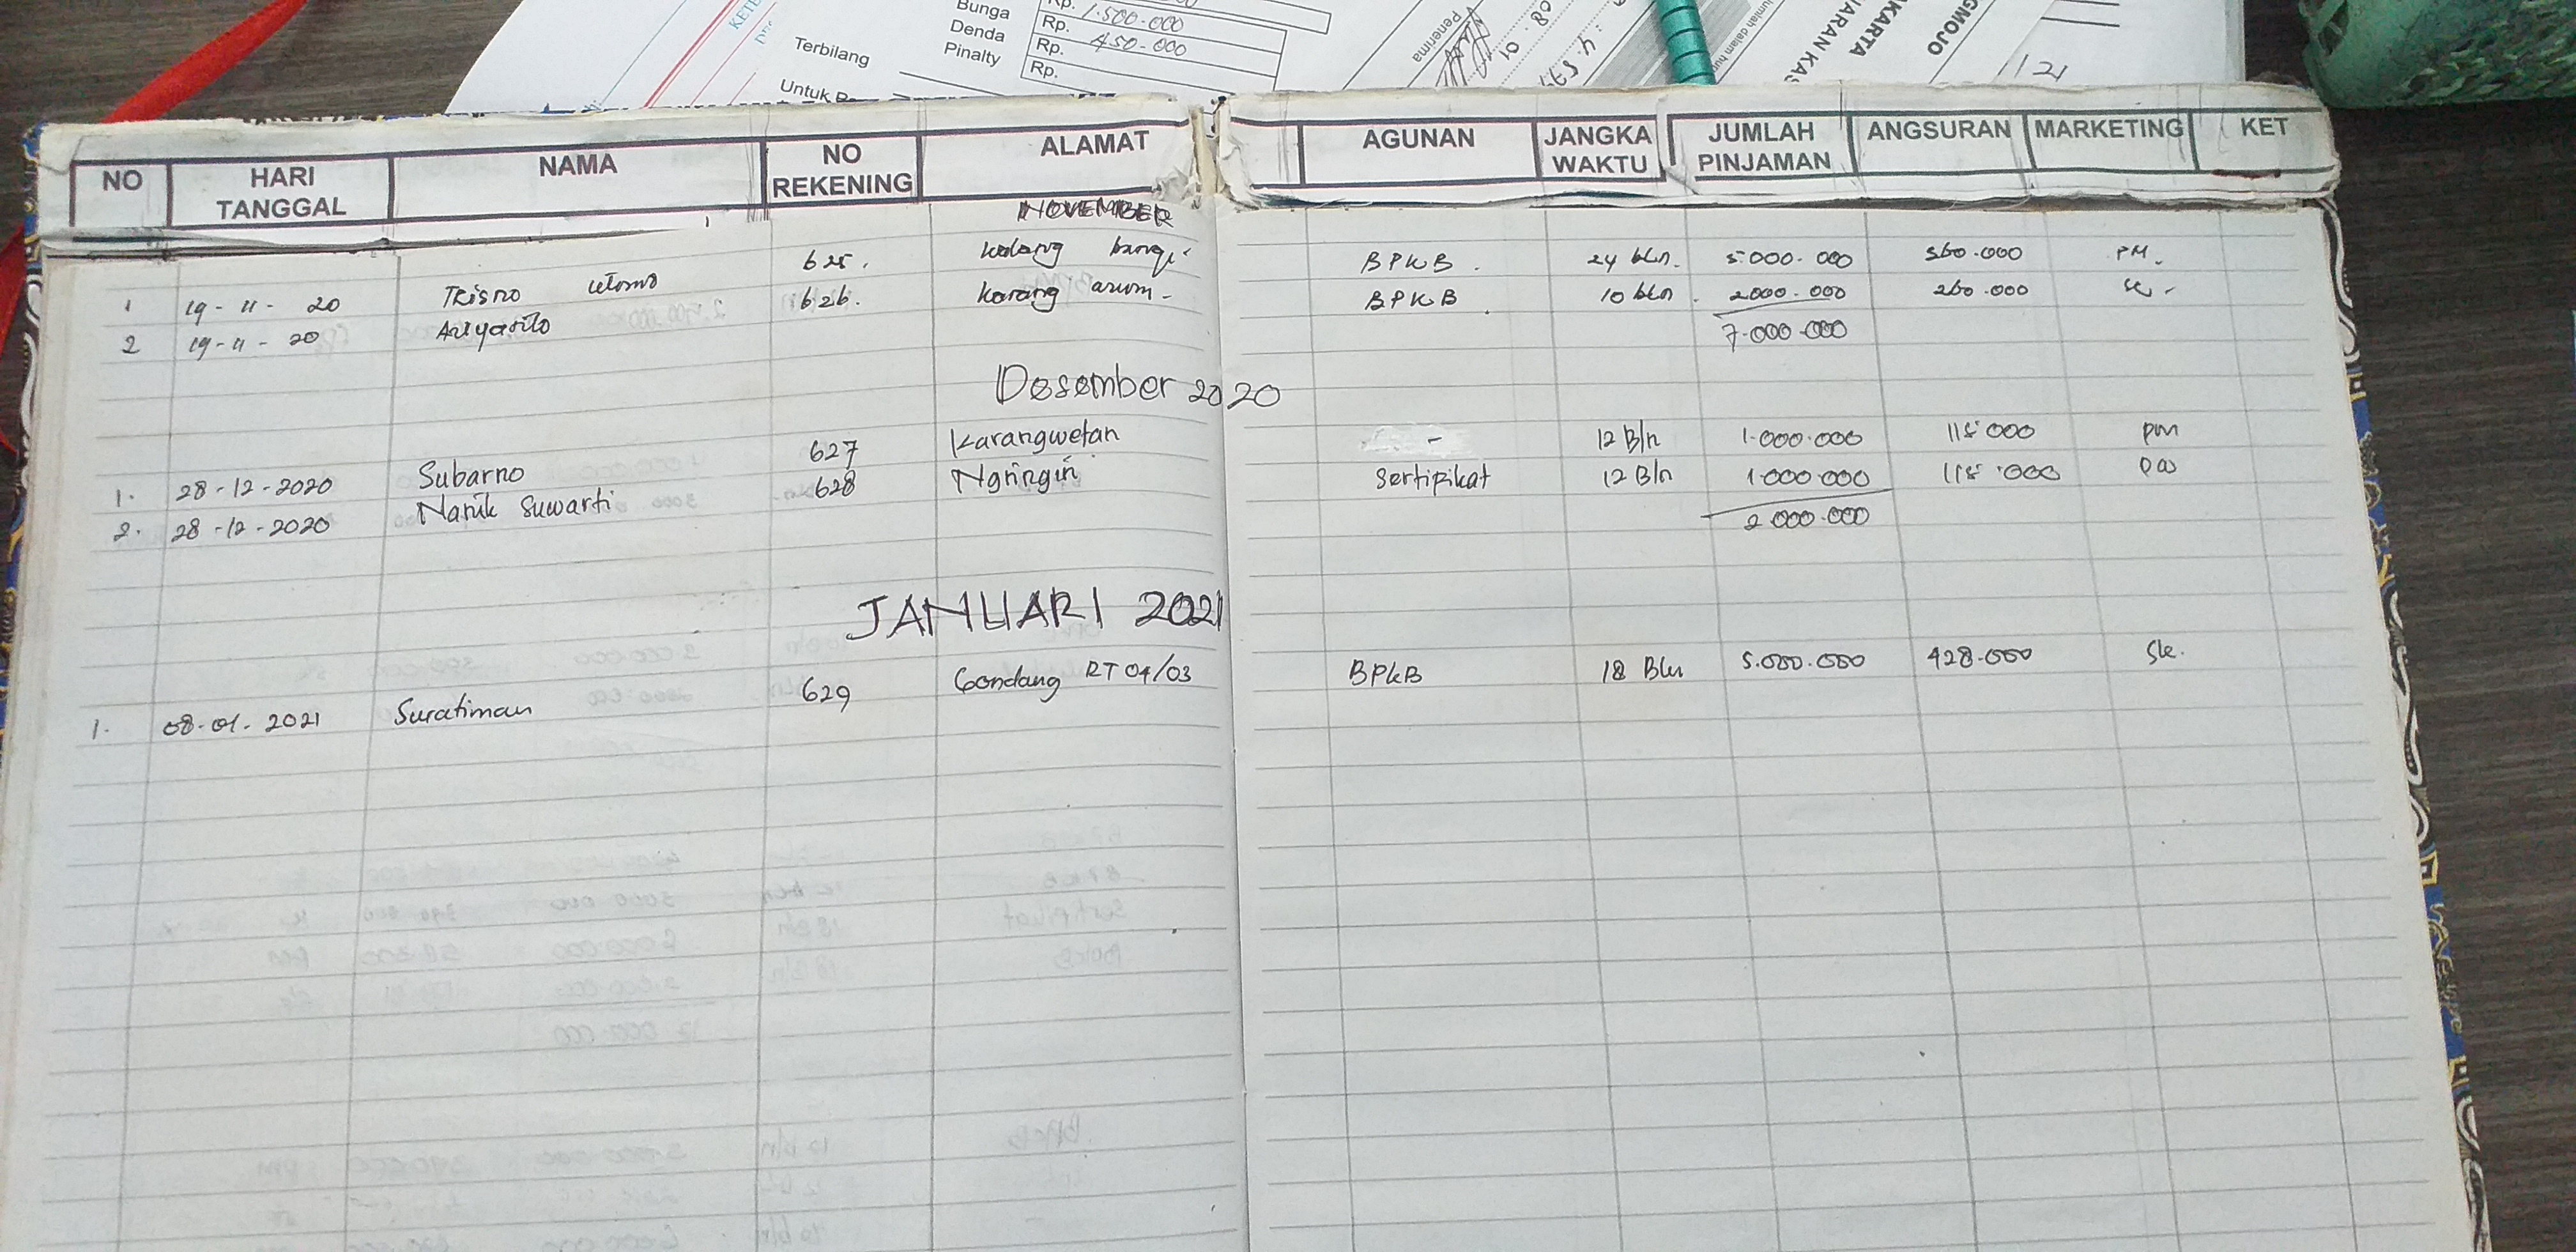 Bunga
Denda
Pinalty
Rp. 1.500.000
Rp. 450.000
Rp.
Terbilang
Penerima
08
01
KARTA
GMOJO
121
NO
HARI TANGGAL
NAMA
NO REKENING
ALAMAT
AGUNAN
JANGKA WAKTU
JUMLAH PINJAMAN
ANGSURAN
MARKETING
KET
NOVEMBER
1 19-11-20 Trisno utomo 625. BPKB. 24 bln. 5.000.000 360.000 PM.
2 19-11-20 626. karang arum- BPKB 10 bln. 2000.000 260.000
7.000.000
Desember 2020
1. 28-12-2020 Subarno 627 Karangwetan - 12 Bln 1.000.000 115.000 pm
2. 28-12-2020 Nanik Suwarti 628 Ngringin Sertipikat 12 Bln 1.000.000 115.000
2.000.000
JANUARI 2021
1. 08-01-2021 Suratiman 629 Gondang RT 04/03 BPKB 18 Bln 5.000.000 428.000